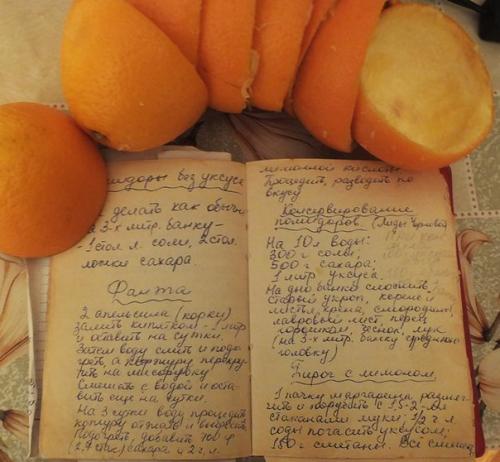 помидоры без уксуса
делать как обычно
на 3-х литр. банку -
- 1 стол. л. соли, 2 стол.
ложки сахара
Фанта
2 апельсина (корку)
Залить кипятком - 1 литр
и оставить на сутки.
Затем воду слить и подо-
греть, а кожуру перекру-
тить на мясорубку
Смешать с водой и оста-
вить еще на сутки.
На 3 сутки воду процедить
кожуру отжать и выбросить
Подогреть, добавить 700 г
сахара и 2 г. л.
лимонной кислоты
Процедить, разводить по
вкусу
Консервирование
помидоров. (Лиды
На 10 л воды:
300 г соли;
500 г сахара;
1 литр. уксуса.
На дно банки сложить
старый укроп, корень и
листья хрена, смородины,
лавровый лист, перец
горошком, чеснок, лук
(на 3-х литр. банку среднюю
головку)
Пирог с лимоном
1 пачку маргарина размяг-
чить и порубить с 3,5-2-мя
стаканами муки; 1/2 г л
соды погасить уксусом;
150 г сметаны. Всё